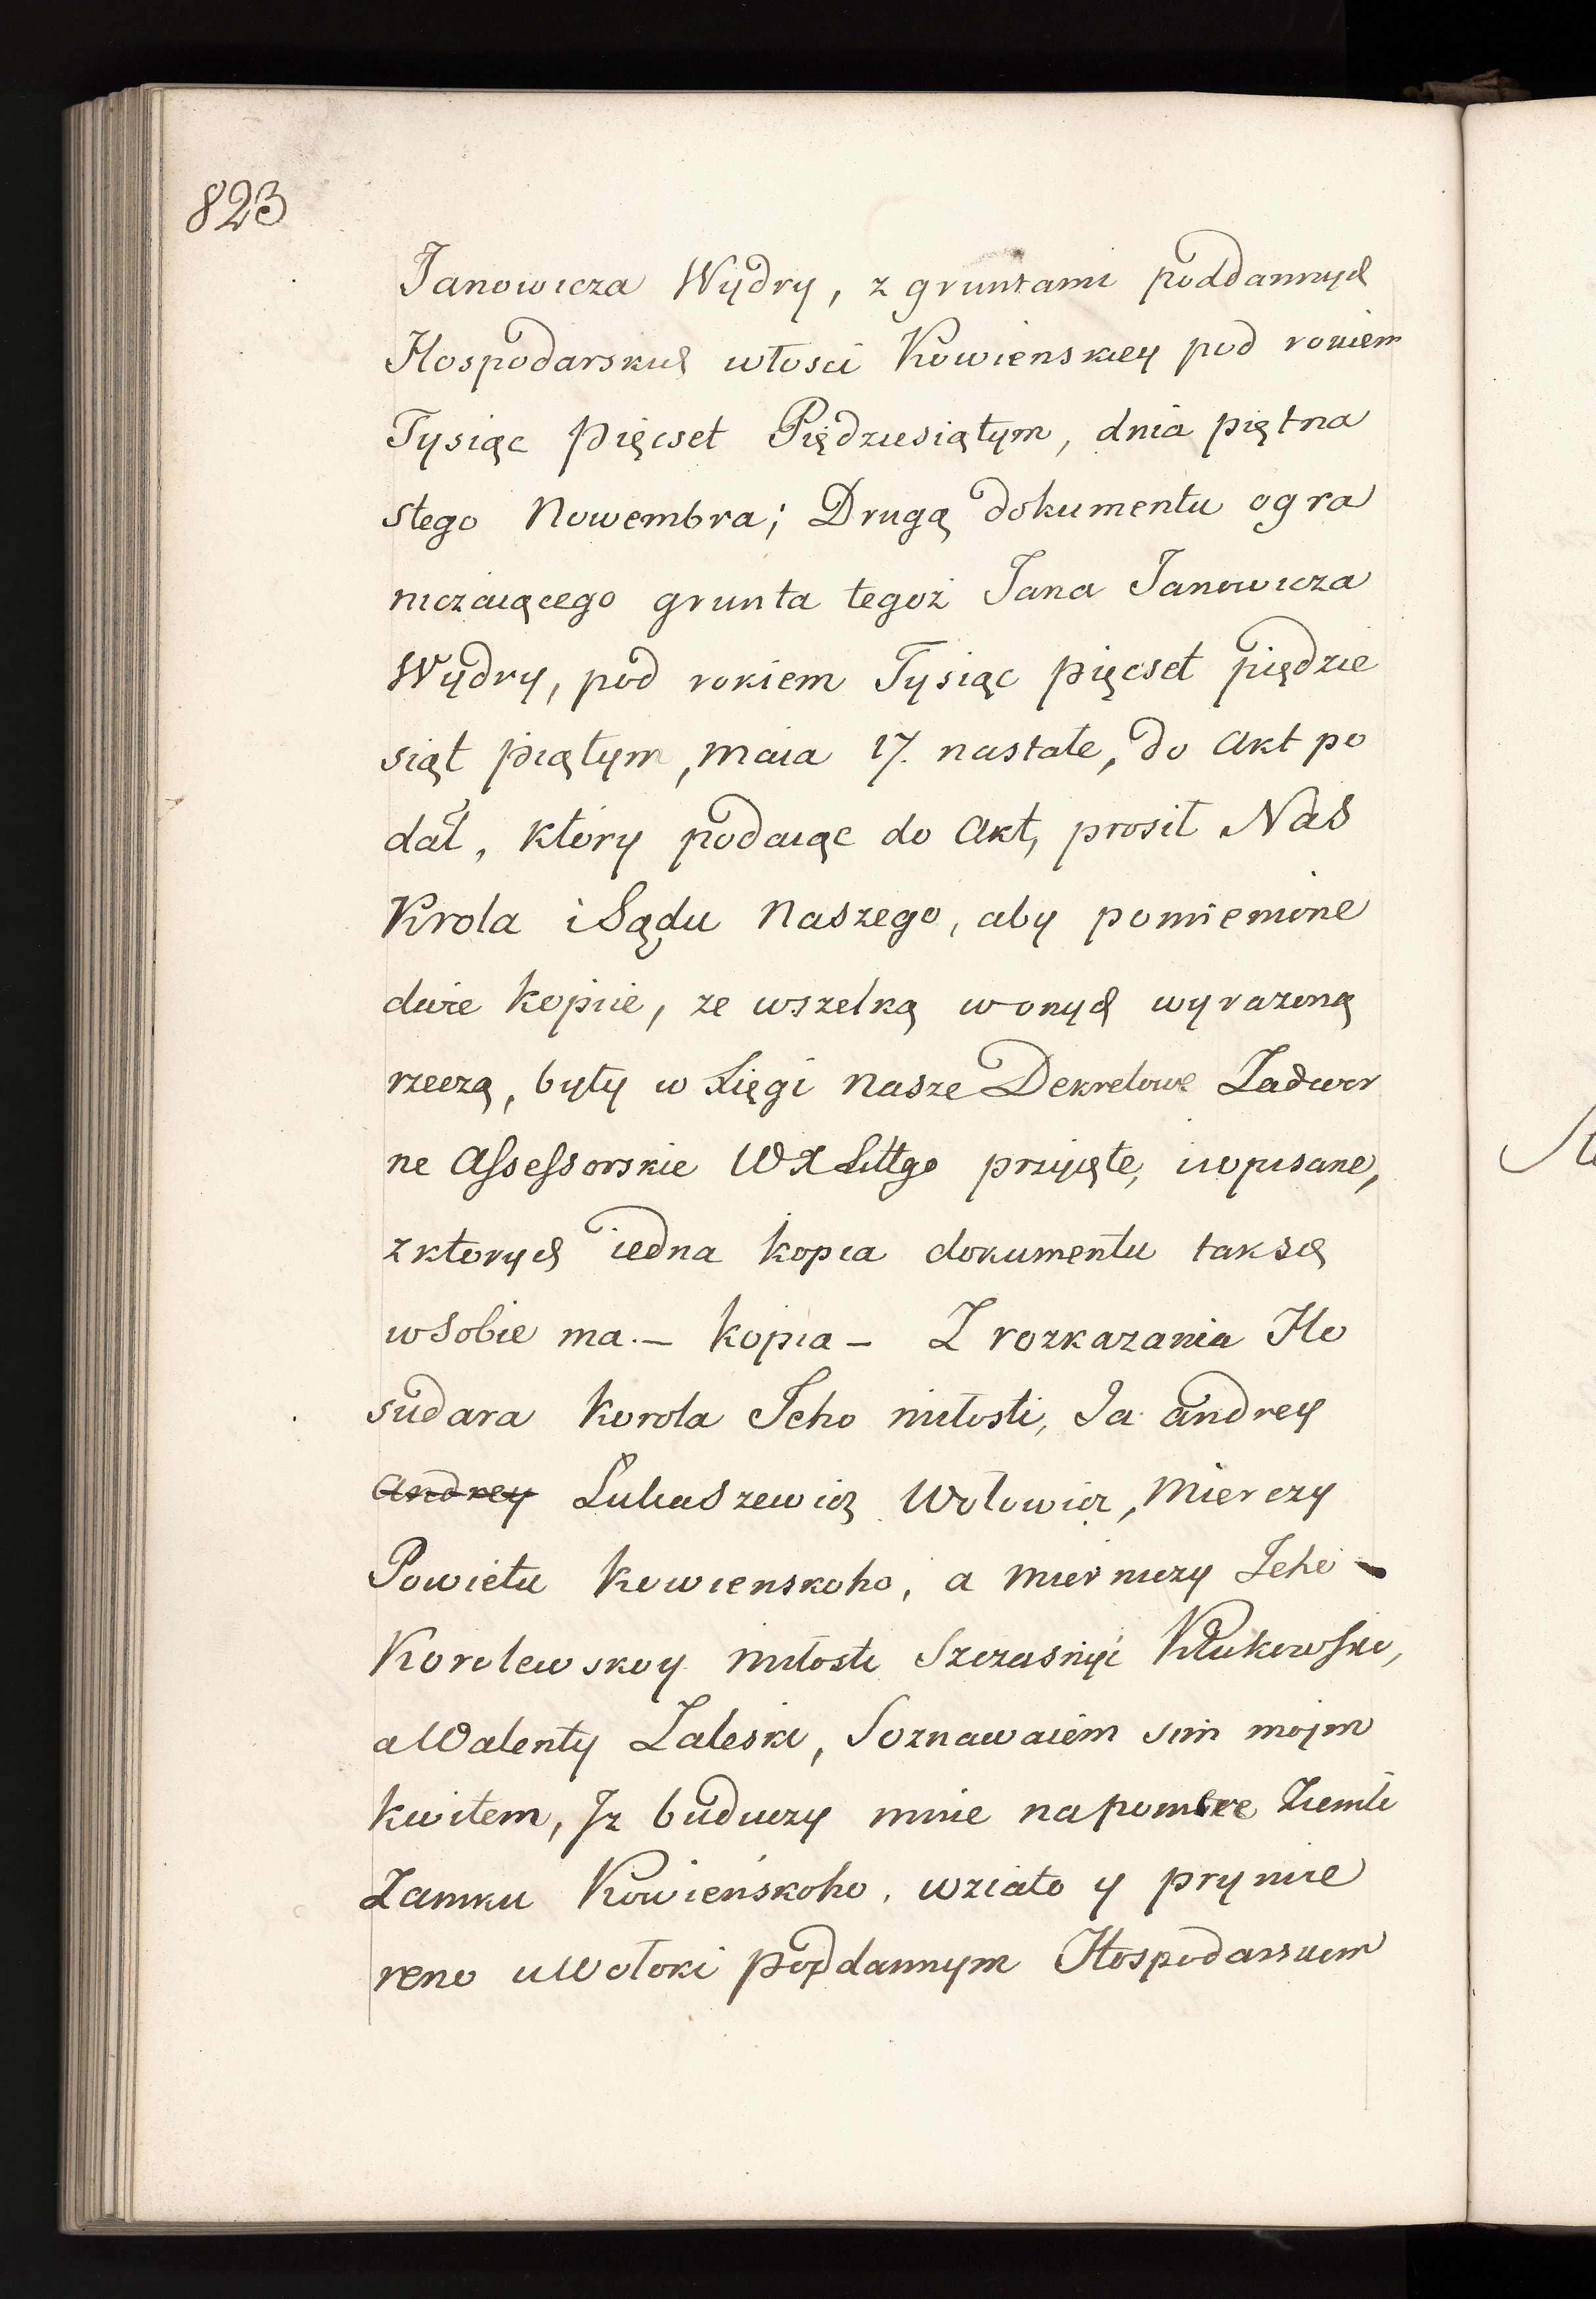 823
Janowicza Wydry, z gruntami poddannych
Hospodarskich włosci Kowienskiey pod rokiem
Tysiąc Pięcset Piędziesiątym, dnia piętna
stego Nowembra; Drugą dokumentu ogra
niczaiącego grunta tegoż Jana Janowicza
Wydry, pod rokiem Tysiąc pięcset piędzie
siąt piątym, maia 17. nastałe, do Akt po
dał, który podaiąc do Akt, prosił Nas
Krola i Sądu Naszego, aby pomienione
dwie kopiie, ze wszelką w onych wyrazoną
rzeczą, były w Xięgi nasze Dekretowe Zadwor
ne Assessorskie W X Littgo przyięte, i wpisane,
z ktorych iedna kopia dokumentu tak się
w sobie ma. – kopia – Z rozkazania Ho
sudara Korola Jeho miłosti, Ja Andrey
Andrey Lukaszewicz Wołowicz, Mierczy
Powietu Kowienskoho, a Mierniczy Jeho
Korolewskoy miłosti Szczasnyi Kłukowski,
a Walenty Zaleski, Soznawaiem sim moim
kwitem, Iż buduczy mnie na pomiere Ziemli
Zamku Kowieńskoho, wziato y prymie
reno u Wołoki poddannym Hospodarskim